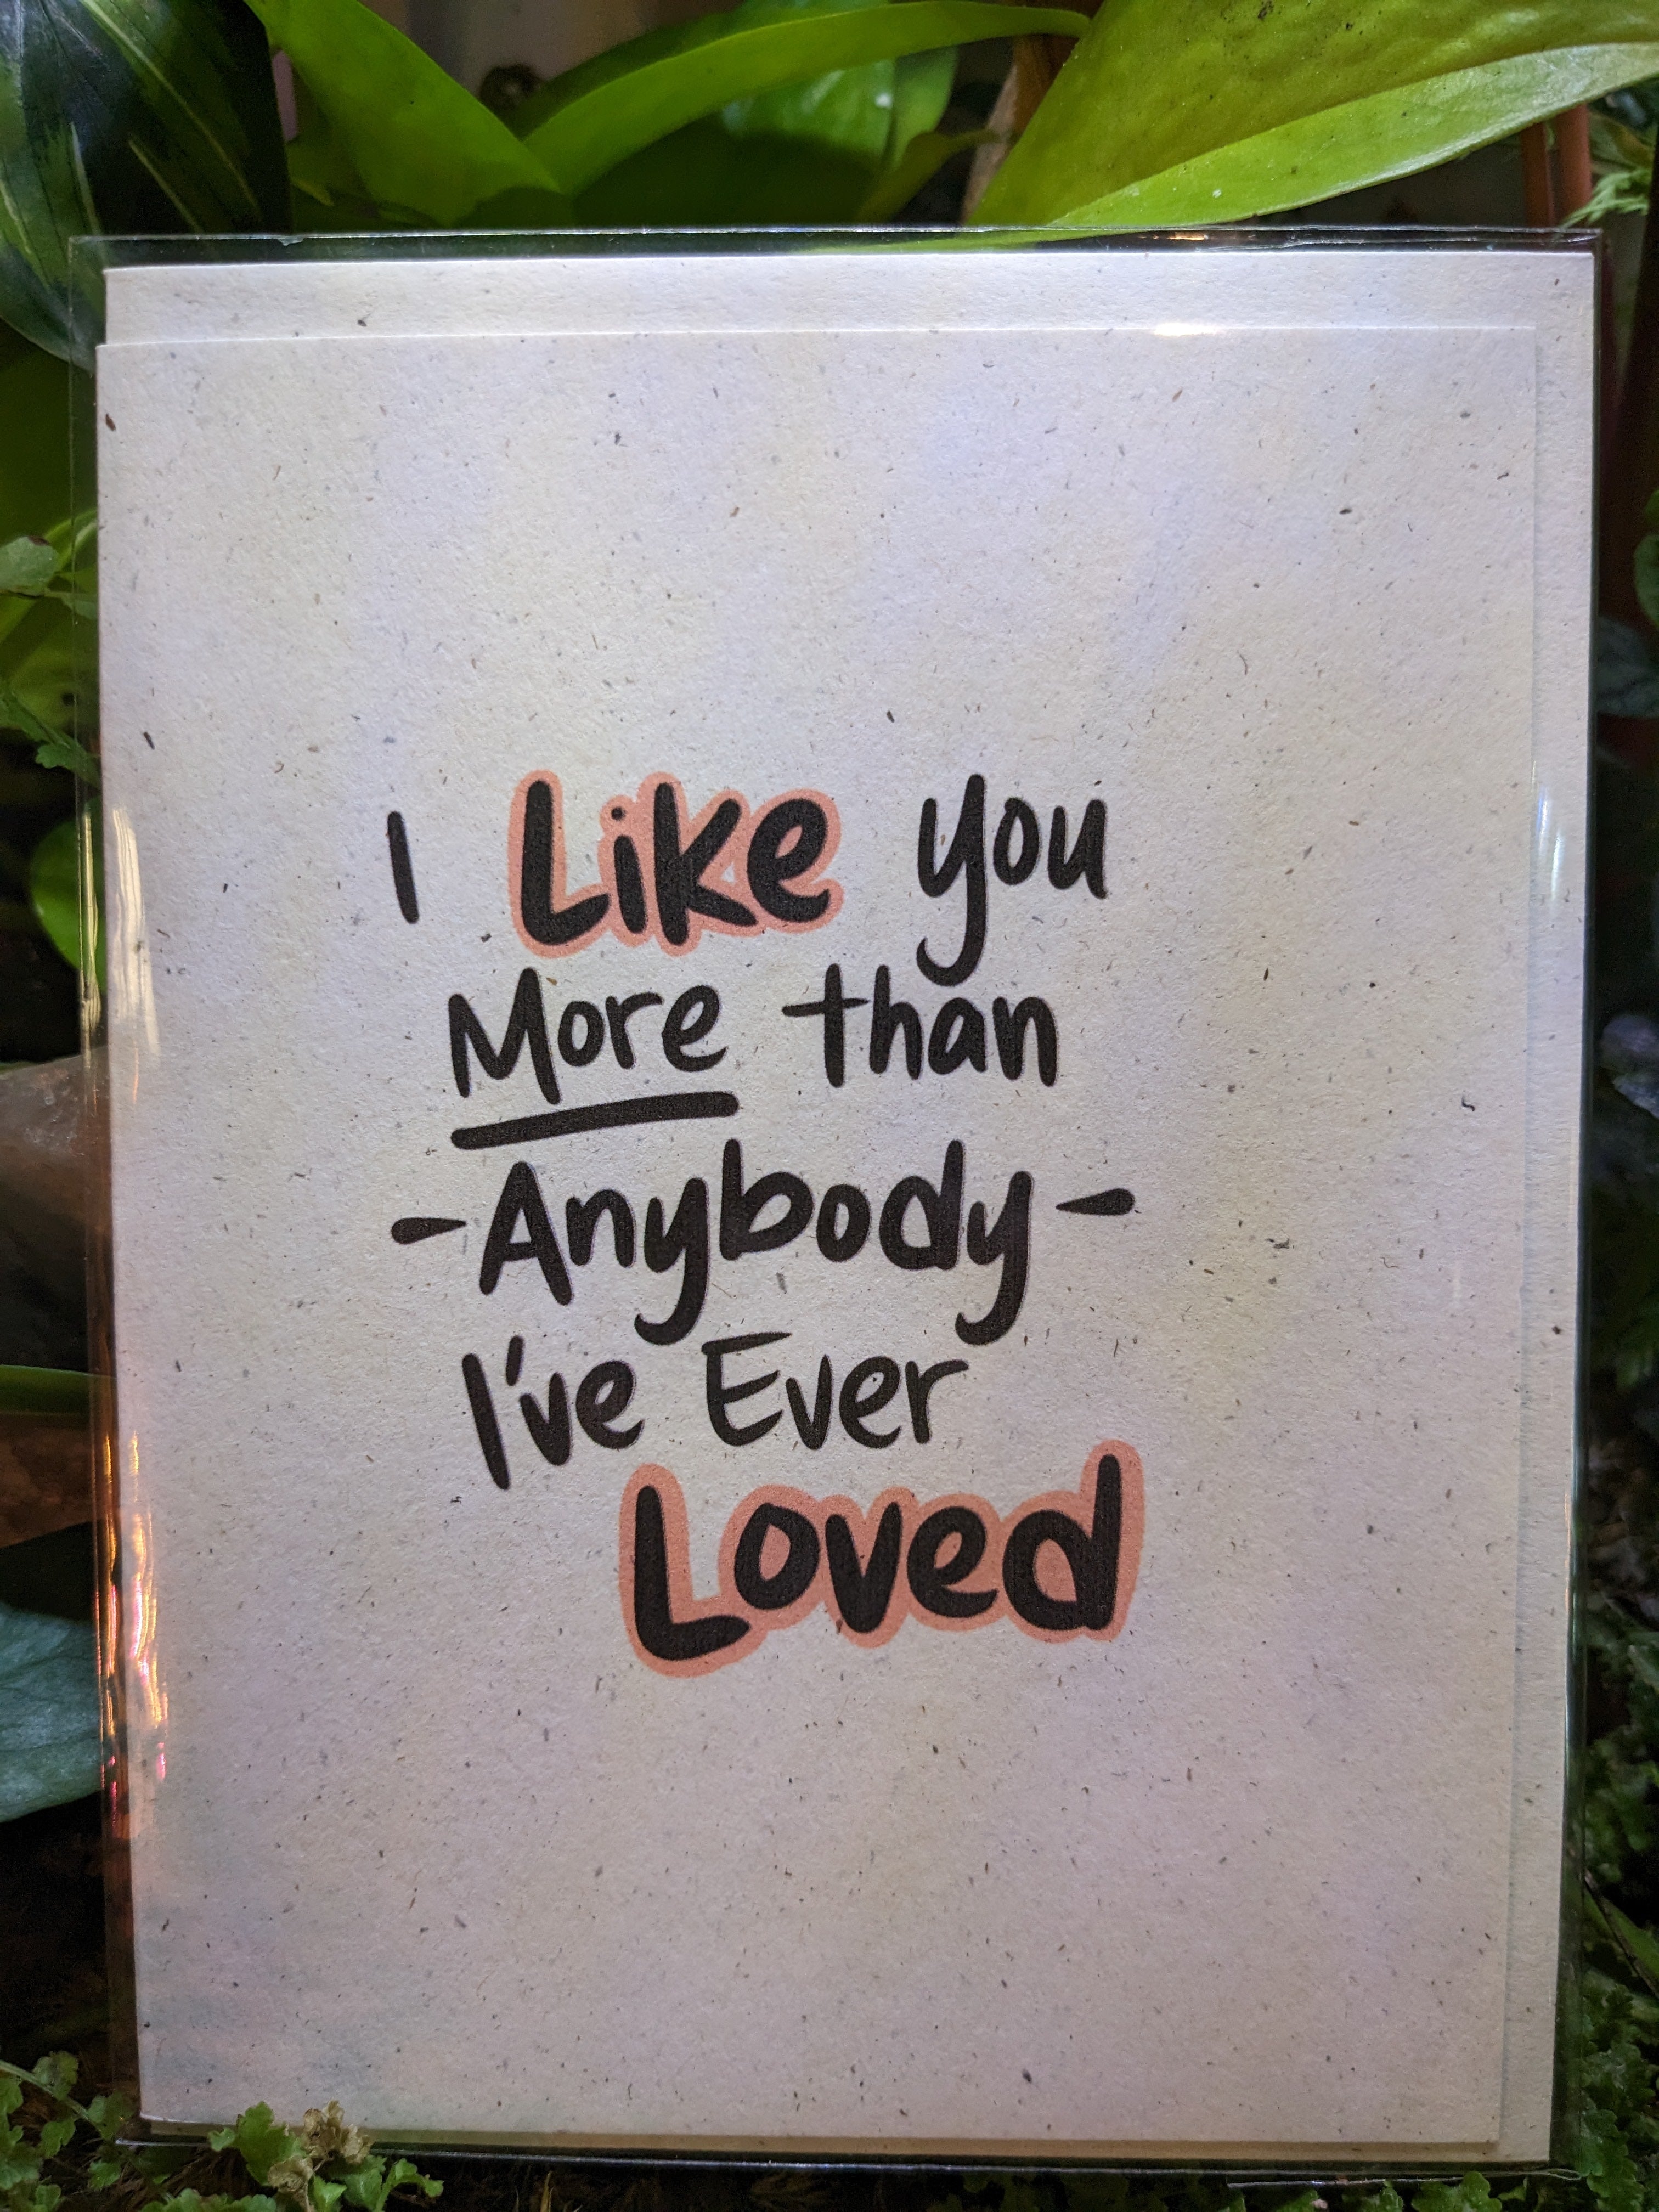 I Like you
More than
-Anybody-
I've Ever
Loved